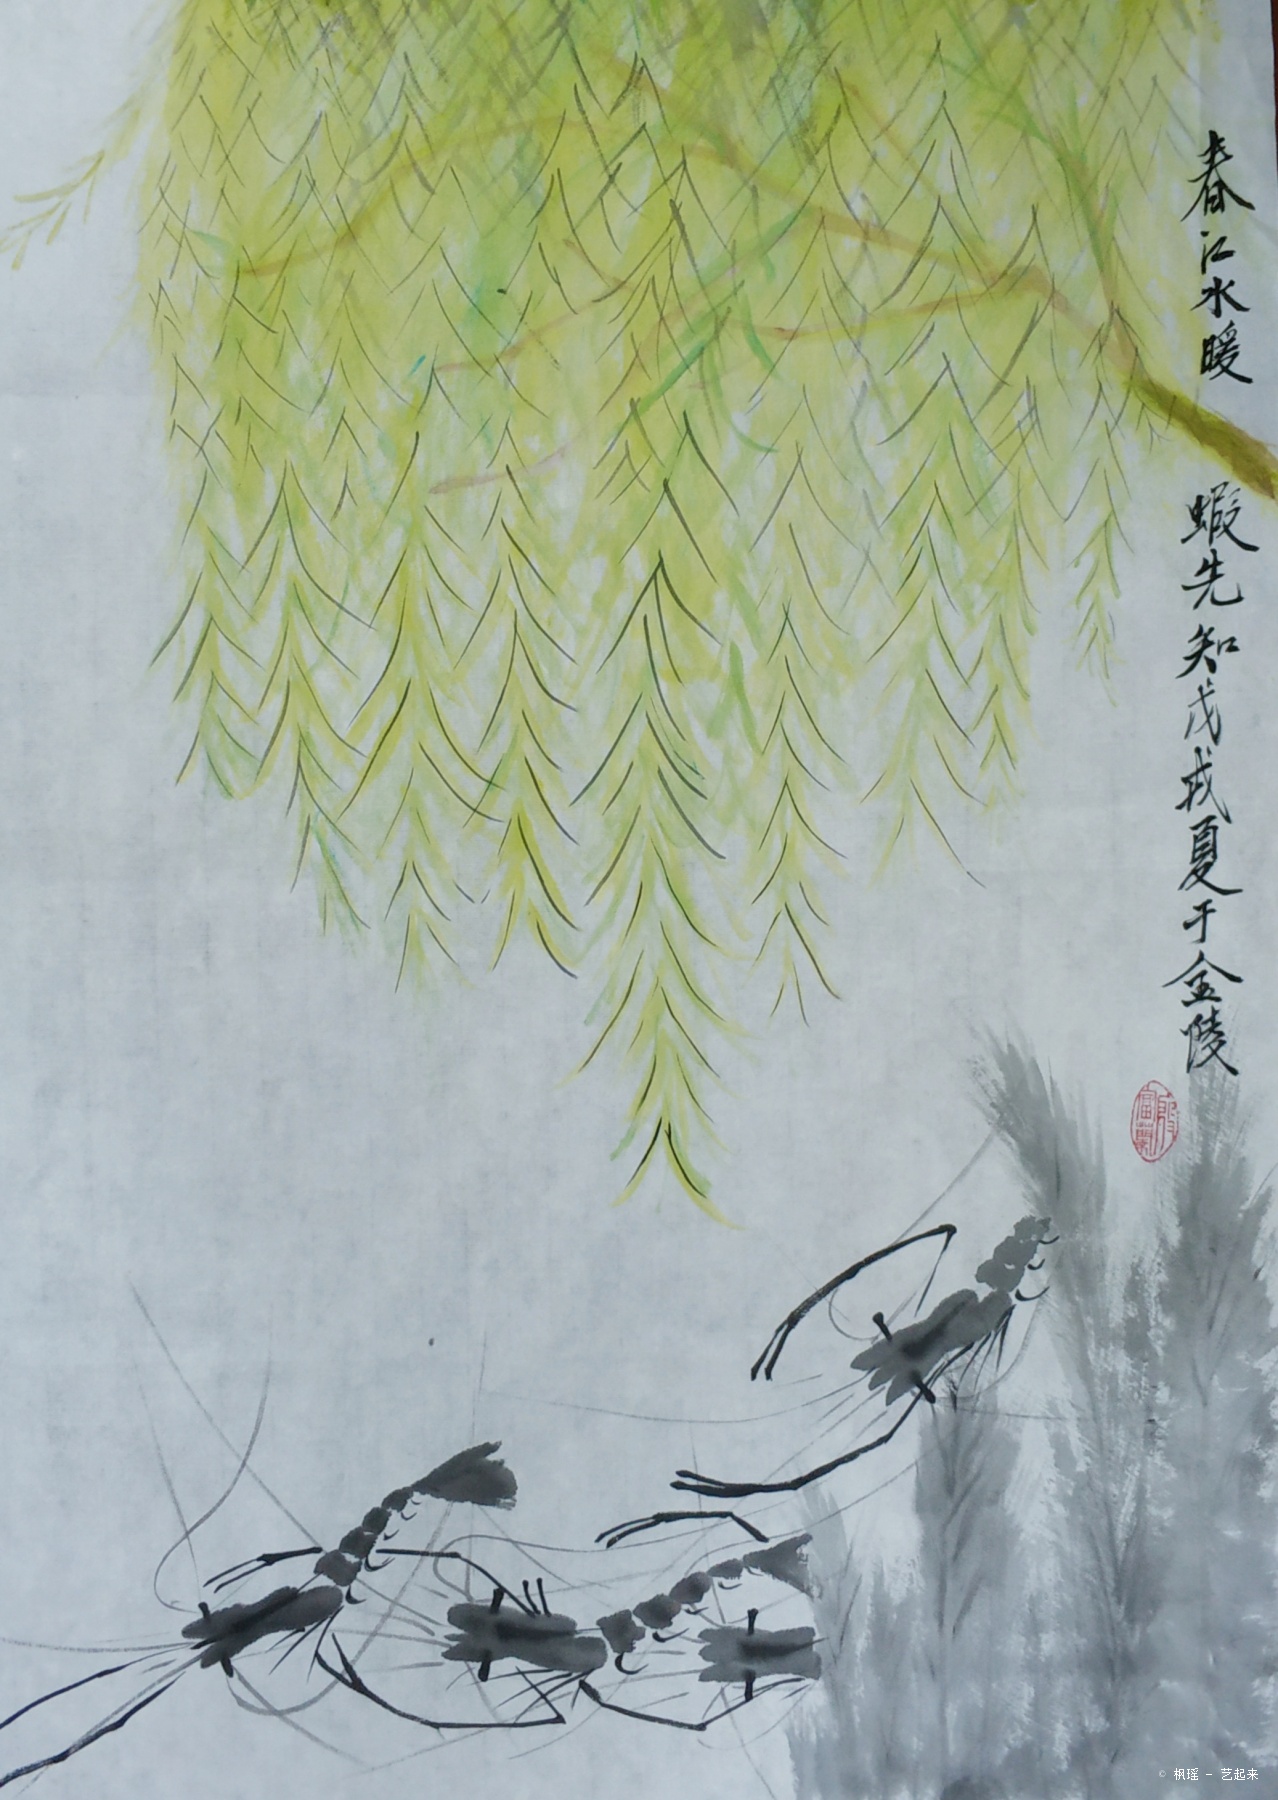 春江水暖 蝦先知戊戌夏于金陵
© 枫瑶 - 艺起来